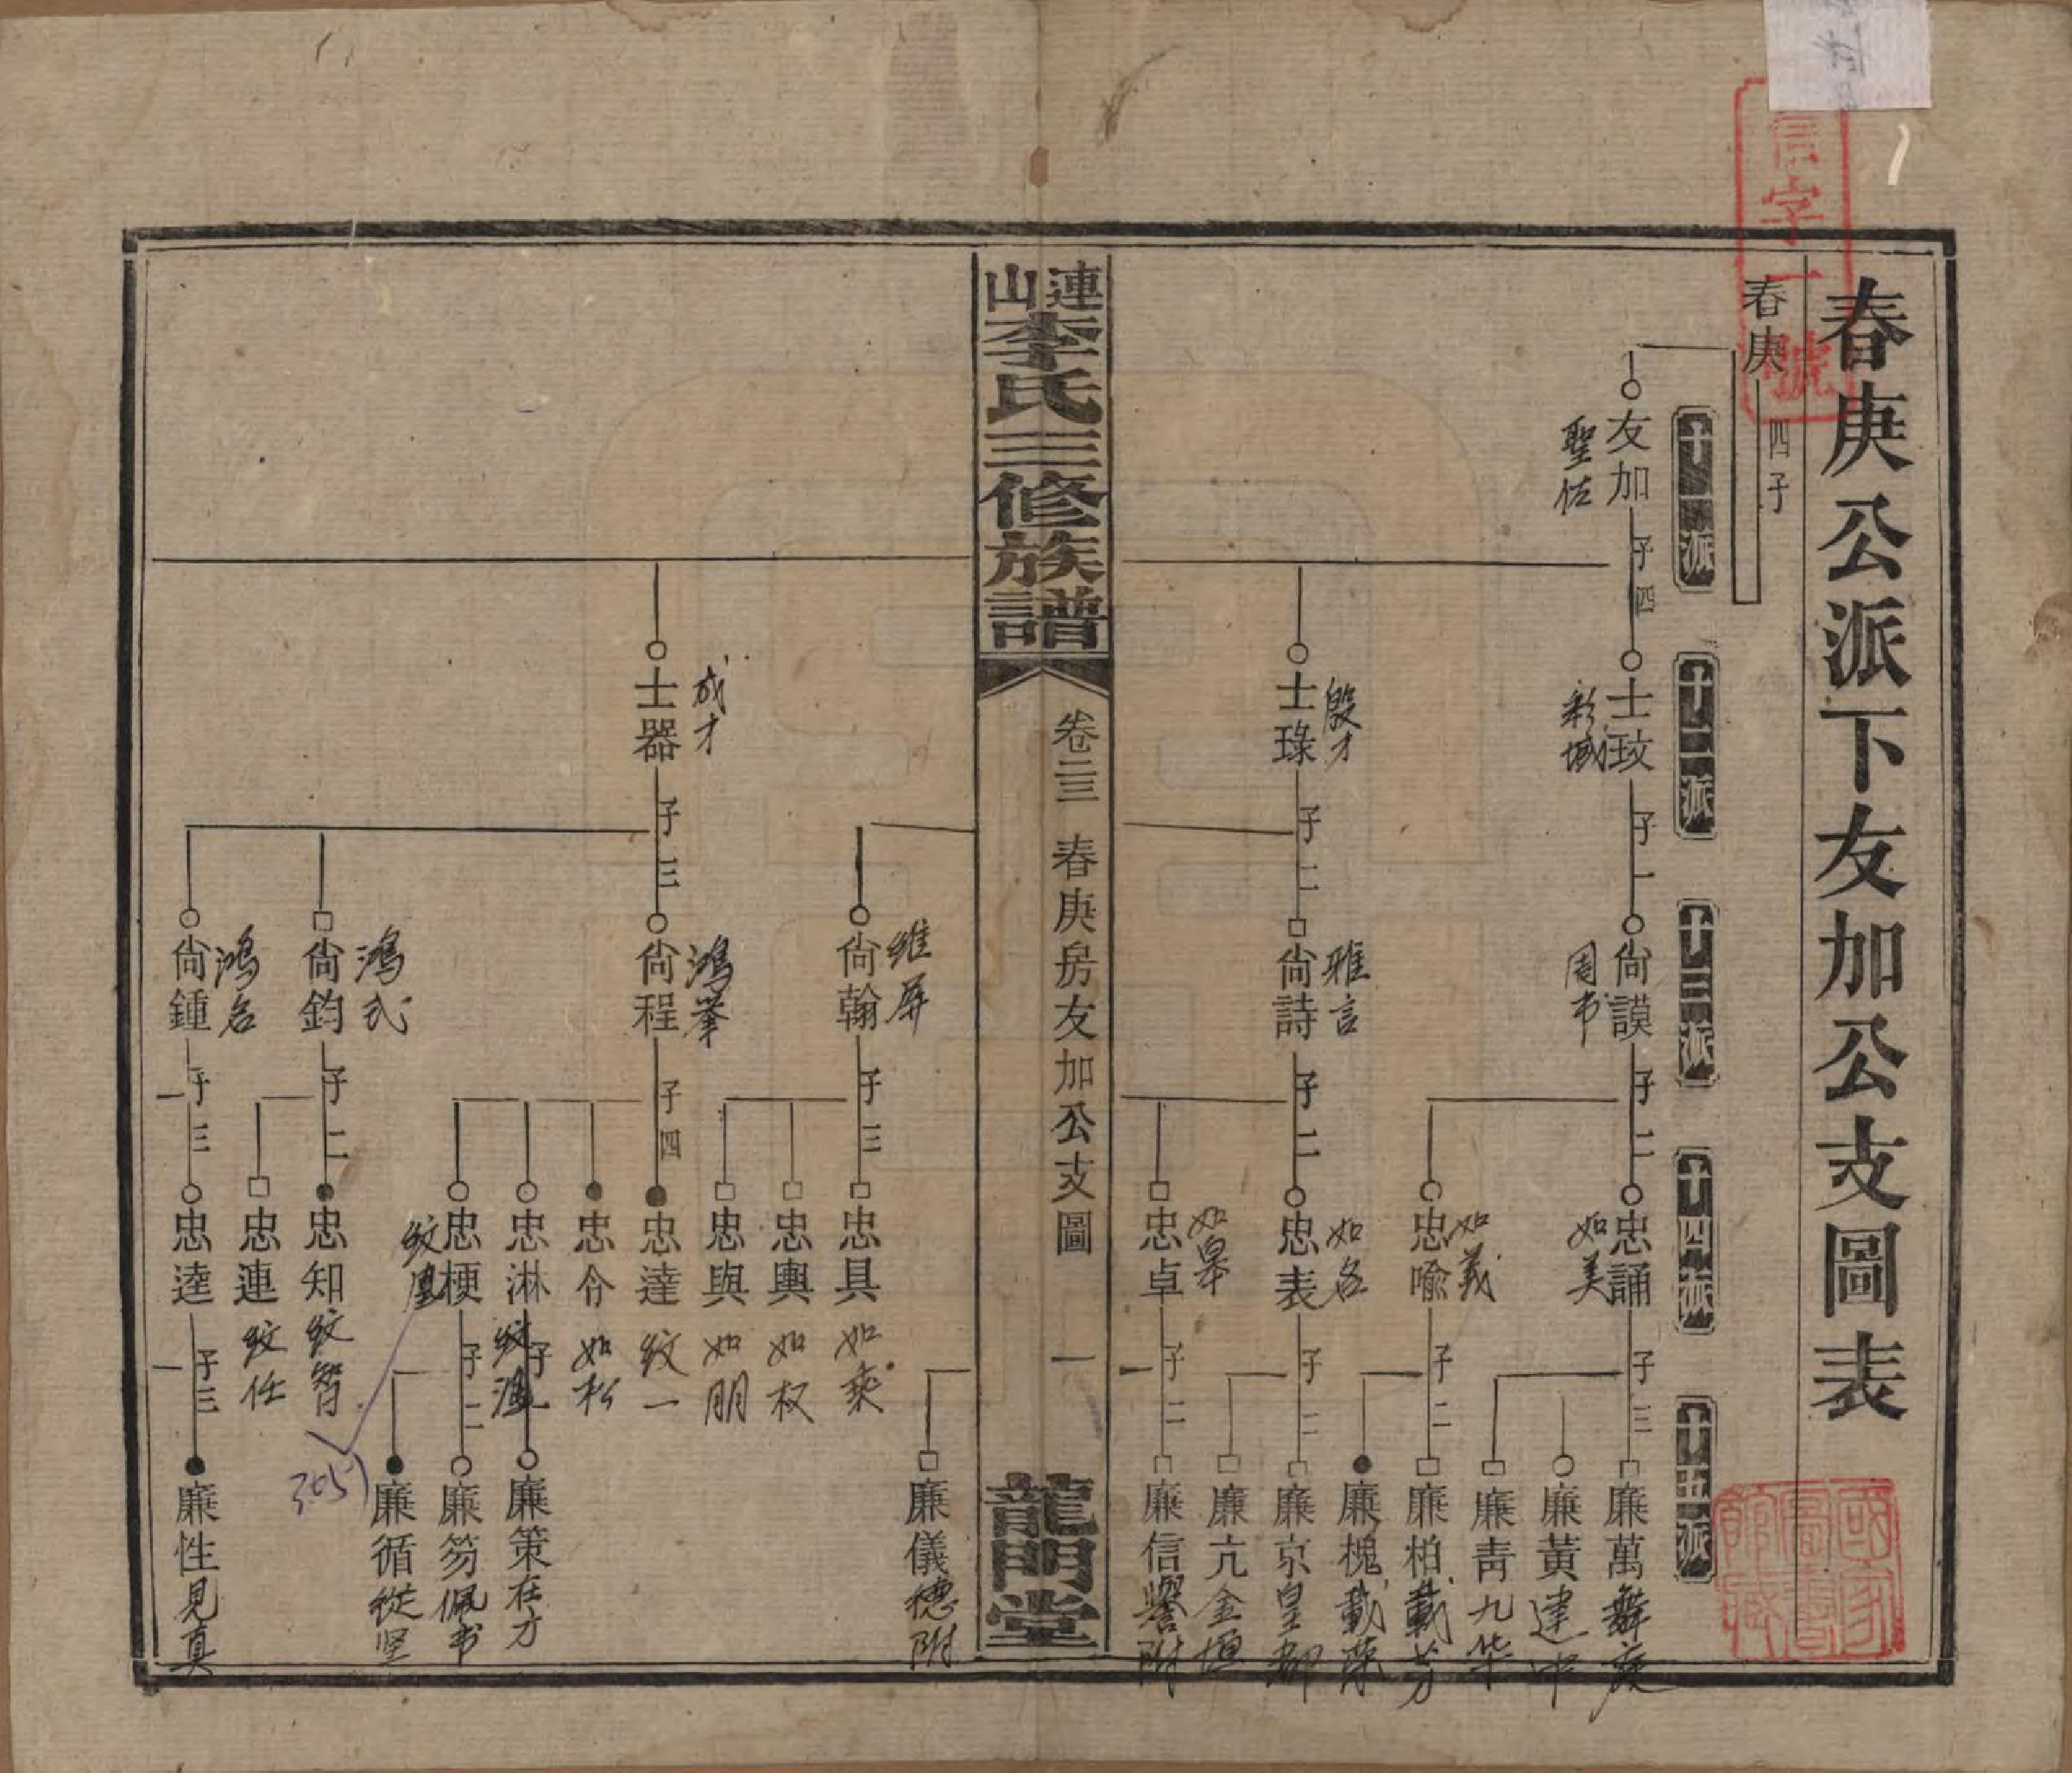 春庚公派下友加公支圖表
信字一號
春庚
四子
十一派
十二派
十三派
十四派
十五派
友加
聖佐
子四
士玟
彩域
子一
尙謨
周书
子二
忠誦
如美
子三
廉萬
舞庭
廉黃
建中
廉靑
九华
忠喩
如義
子二
廉柏
載芳
廉槐
載蔭
士琭
殷才
子二
尙詩
雅言
子二
忠表
如名
子二
廉京
皇都
廉亢
金垣
忠卓
如皋
子二
廉信
譽附
連山李氏三修族譜
卷二三 春庚房友加公支圖
一
龍門堂
廉儀
穗附
尙翰
維屏
子三
忠具
如桒
忠輿
如权
忠與
如朋
士器
成才
子三
尙程
鸿举
子四
忠達
纹一
忠仱
如松
忠淋
纹漣
子一
廉策
在才
忠梗
纹凰
子二
廉笏
佩书
廉循
從坚
305
尙鈞
鸿弌
子二
忠知
纹智
忠連
纹任
尙鍾
鸿名
子三
忠逵
子三
廉性
見真
國家圖書館藏